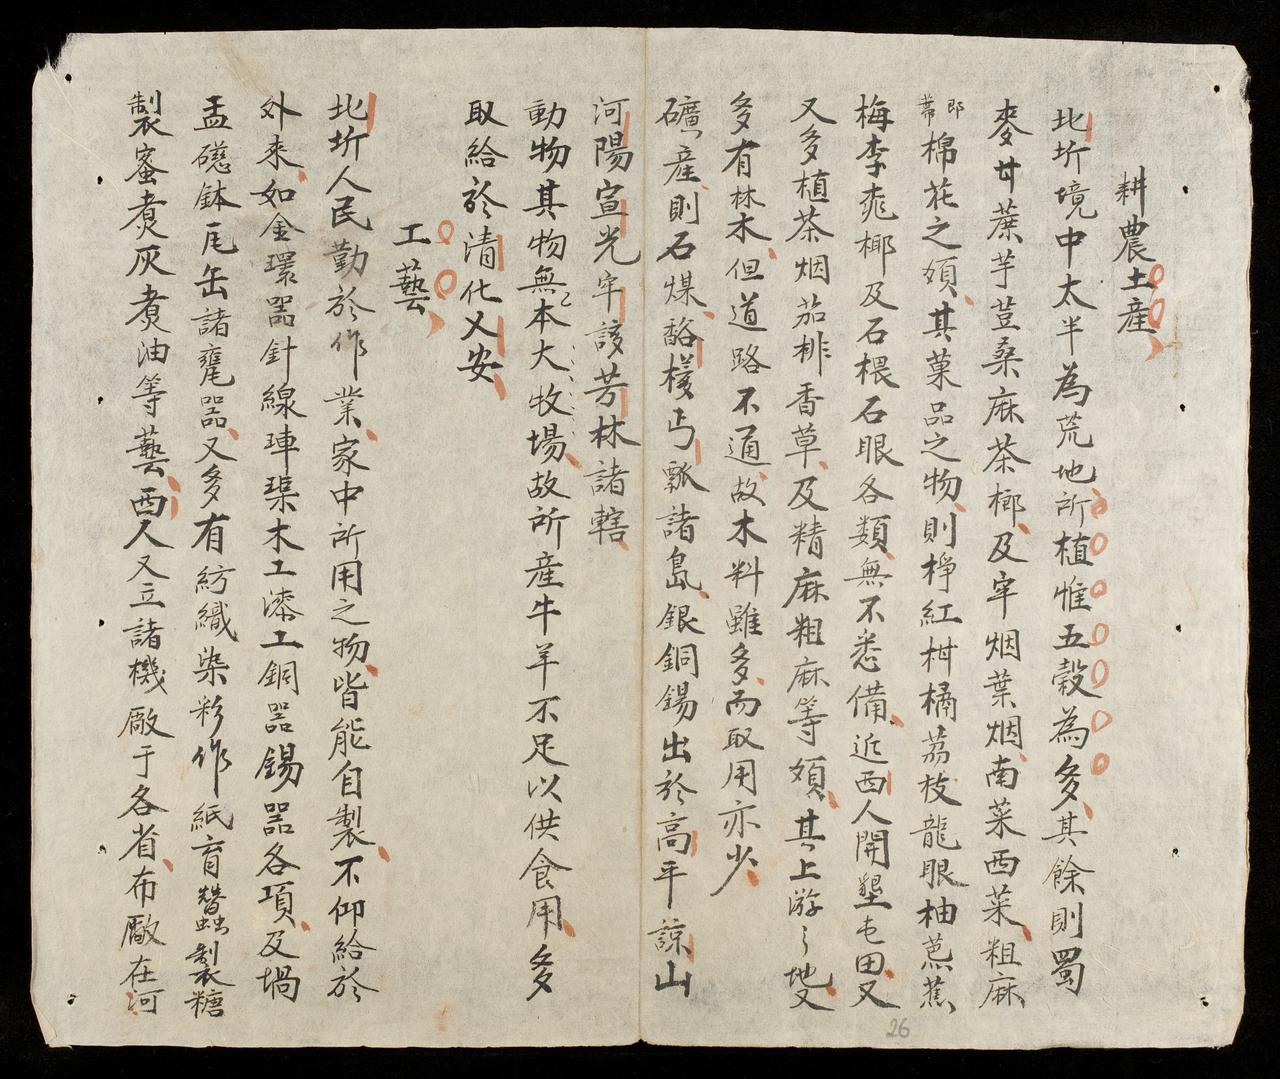 耕農土産
北圻境中太半為荒地所植惟五穀為多其餘則蜀
麥甘蔗芋荳桑麻茶榔及牢烟葉烟南菜西菜粗麻
即苐棉花之類其菓品之物則柠紅柑橘荔枝龍眼柚芭蕉
梅李桃椰及石榅石眼各類無不悉備近西人開墾屯田又
又多植茶烟茄排香草及精麻粗麻等類其上游〻地又
多有林木但道路不通故木料雖多而取用亦少
礦產則石煤鴻樣丐瓢諸島銀銅錫出於高平諒山
河陽宣光牢該芳林諸轄
動物其物無本大牧場故所産牛羊不足以供食用多
取給於清化乂安
工藝
北圻人民勤於作業家中所用之物皆能自製不仰給於
外来如金環器針線琿琹木工漆工銅器錫器各項及堝
盂礠鉢瓦缶諸甕器又多有紡織染彩作紙育蠶製糖
製蜜煮灰煮油等藝西人又立諸機廠于各省布廠在河
26